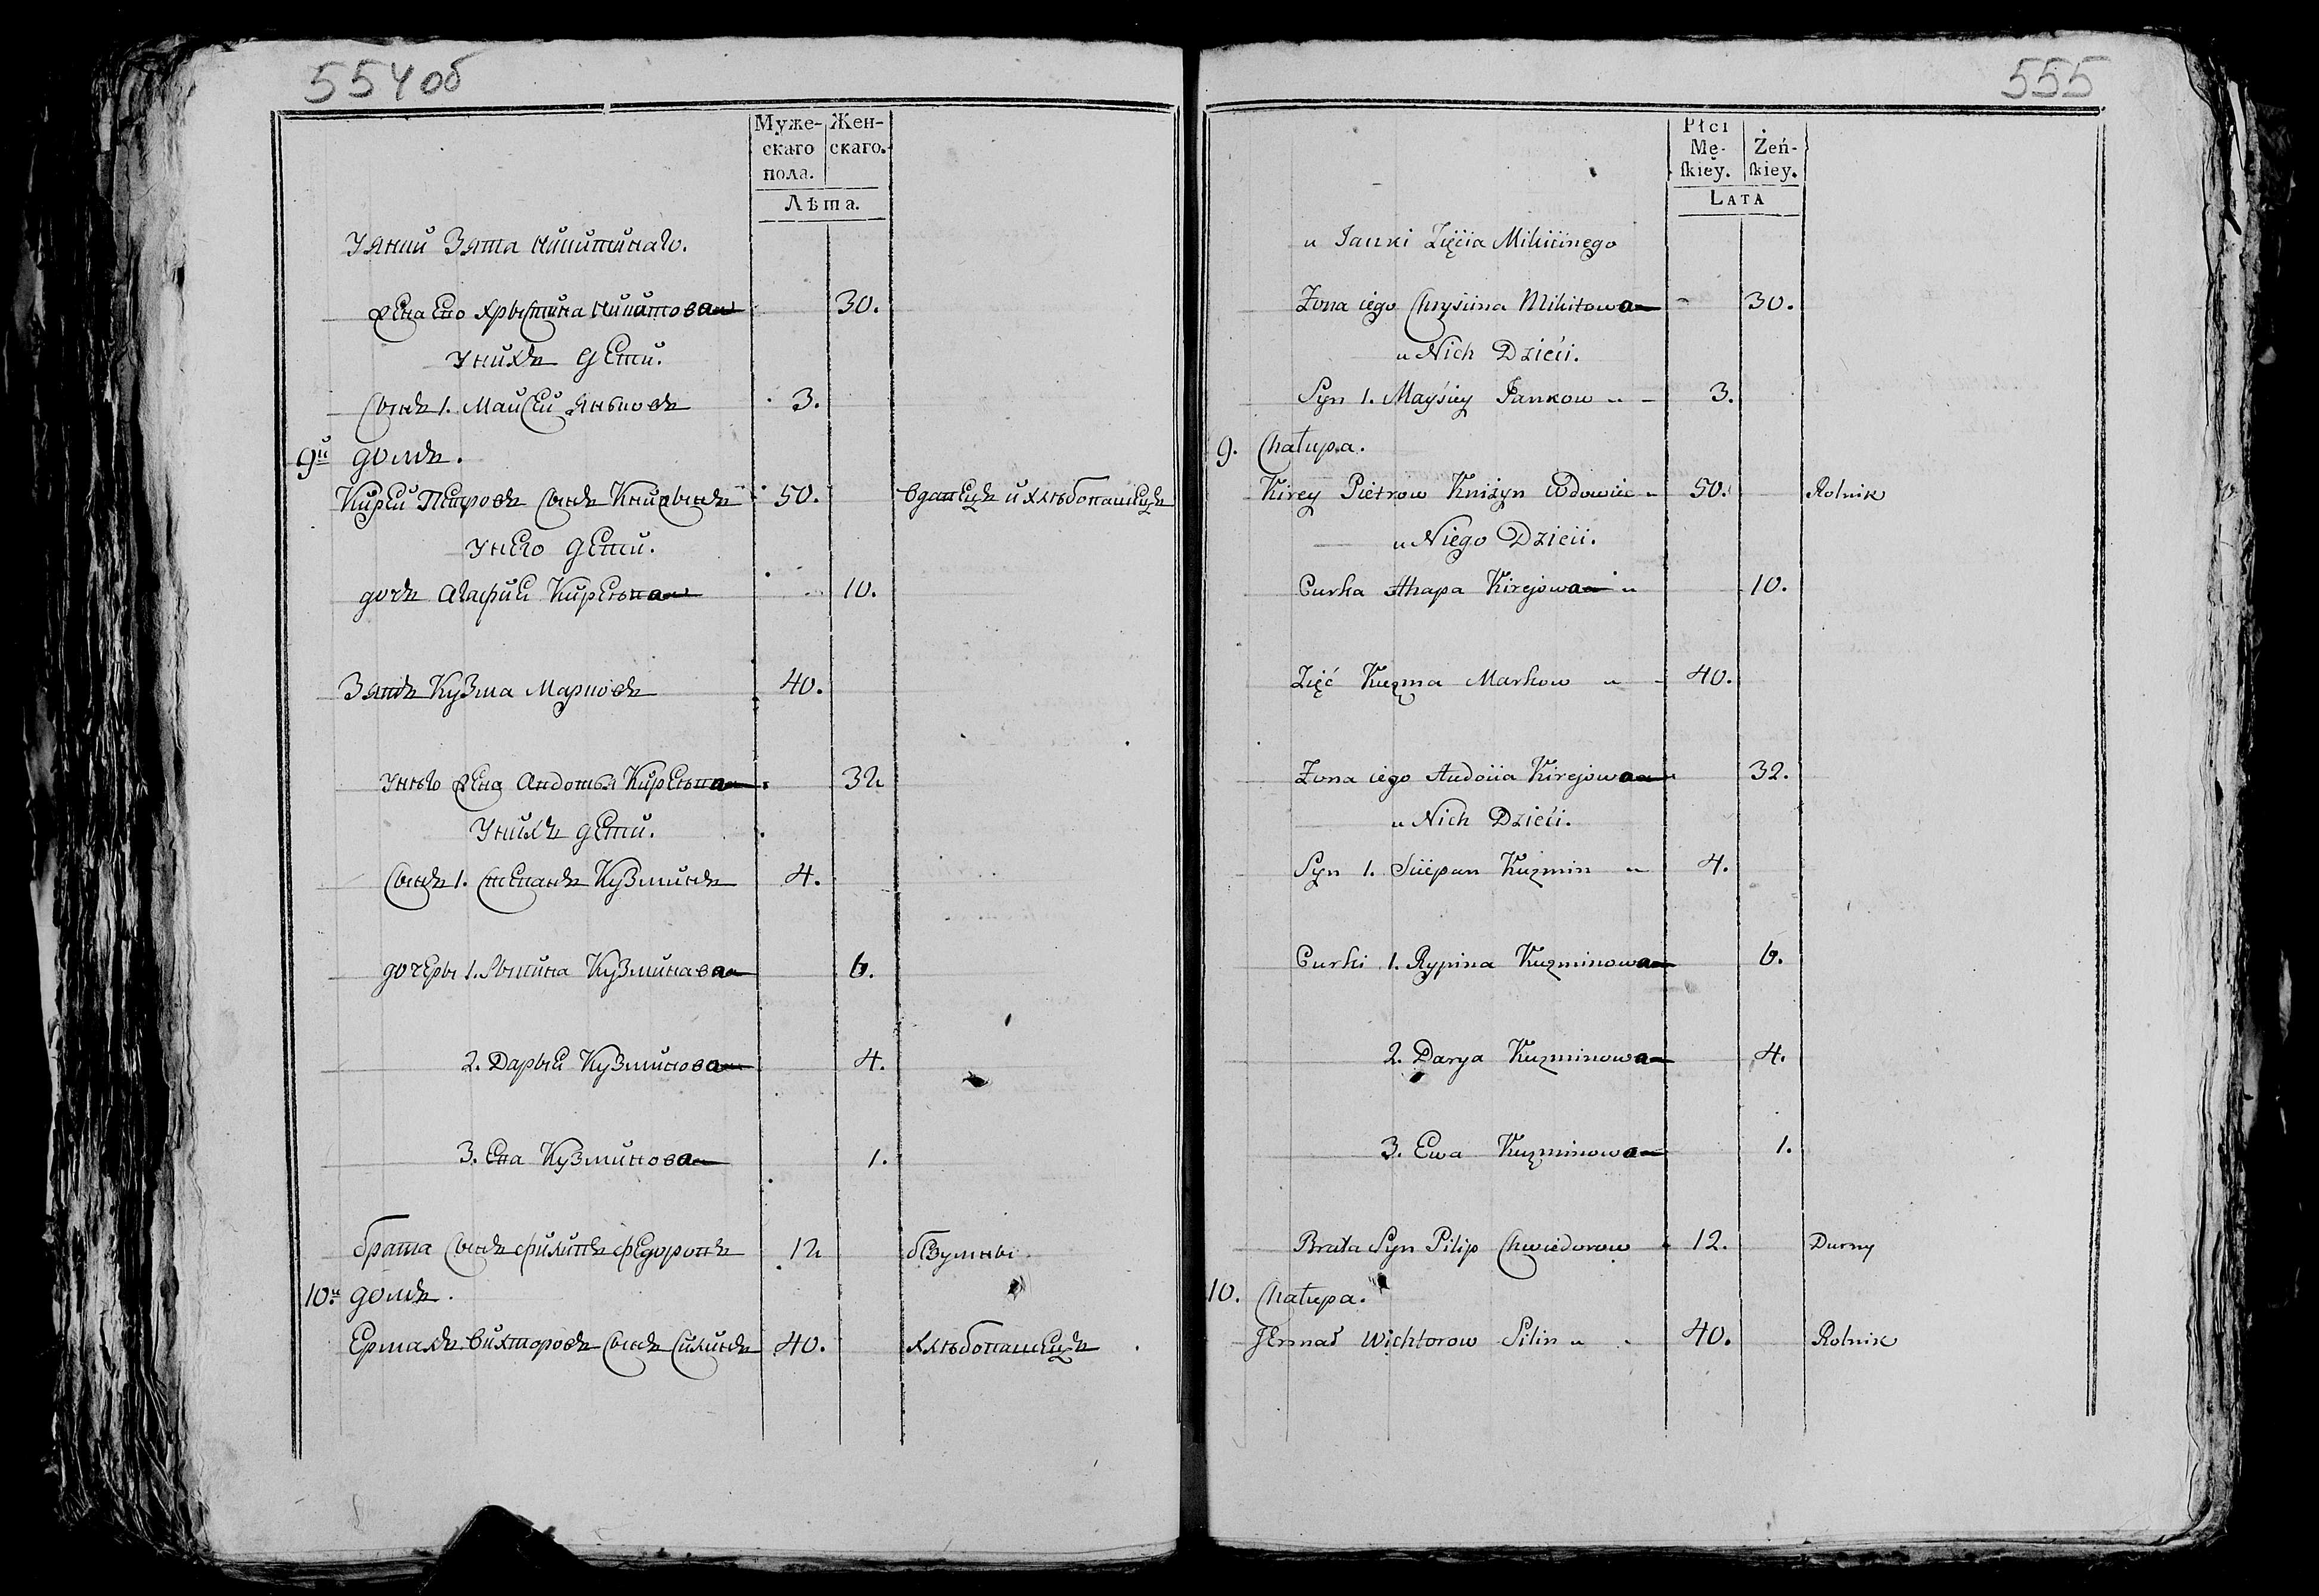 554 об
Муже-
скаго
пола.
Жен-
скаго.
Лѣта.
Уянки Зятя Никитинаго.
Жена его Хрыстина Никитова 30.
Унихъ дети.
Сынъ 1. Майсей Яньковъ 3.
9й домъ.
Кирей Петровъ Сынъ Книжынъ 50. вдовецъ и хлѣбопашецъ
Унего дети.
дочь Агафия Кирѣева 10.
Зять Кузма Марковъ 40.
Унѣго Жена Андотья Кирѣева 32
Унихъ дети.
Сынъ 1. Степанъ Кузминъ 4.
дочеры 1. Рыпина Кузминава 6.
2. Дарья Кузминова 4.
3. Ева Кузминова 1.
брата Сынъ Филипъ Федоровъ 12 безумны
10й домъ.
Ермалъ Вихторовъ Сынъ Силинъ 40. хлѣбопашецъ
555
Płci
Mę-
skiey.
Żeń-
skiey.
LATA
u Janki Zięcia Mikicinego
Żona iego Chrysiina Mikitowa 30.
u Nich Dzieći.
Syn 1. Mayśiey Jankow 3.
9. Chałupa.
Kirey Pietrow Kniżyn Wdowiec 50. Rolnik
u Niego Dzieci.
Curka Ahapa Kirejowa 10.
Zięć Kuzma Markow 40.
Żona iego Audocia Kirejowa 32.
u Nich Dzieći.
Syn 1. Sciepan Kuzmin 4.
Curki 1. Rypina Kuzminowa 6.
2. Darya Kuzminowa 4.
3. Ewa Kuzminowa 1.
Brata Syn Pilip Chwiedorow 12. Durny
10. Chałupa.
Jermał Wichtorow Silin 40. Rolnik